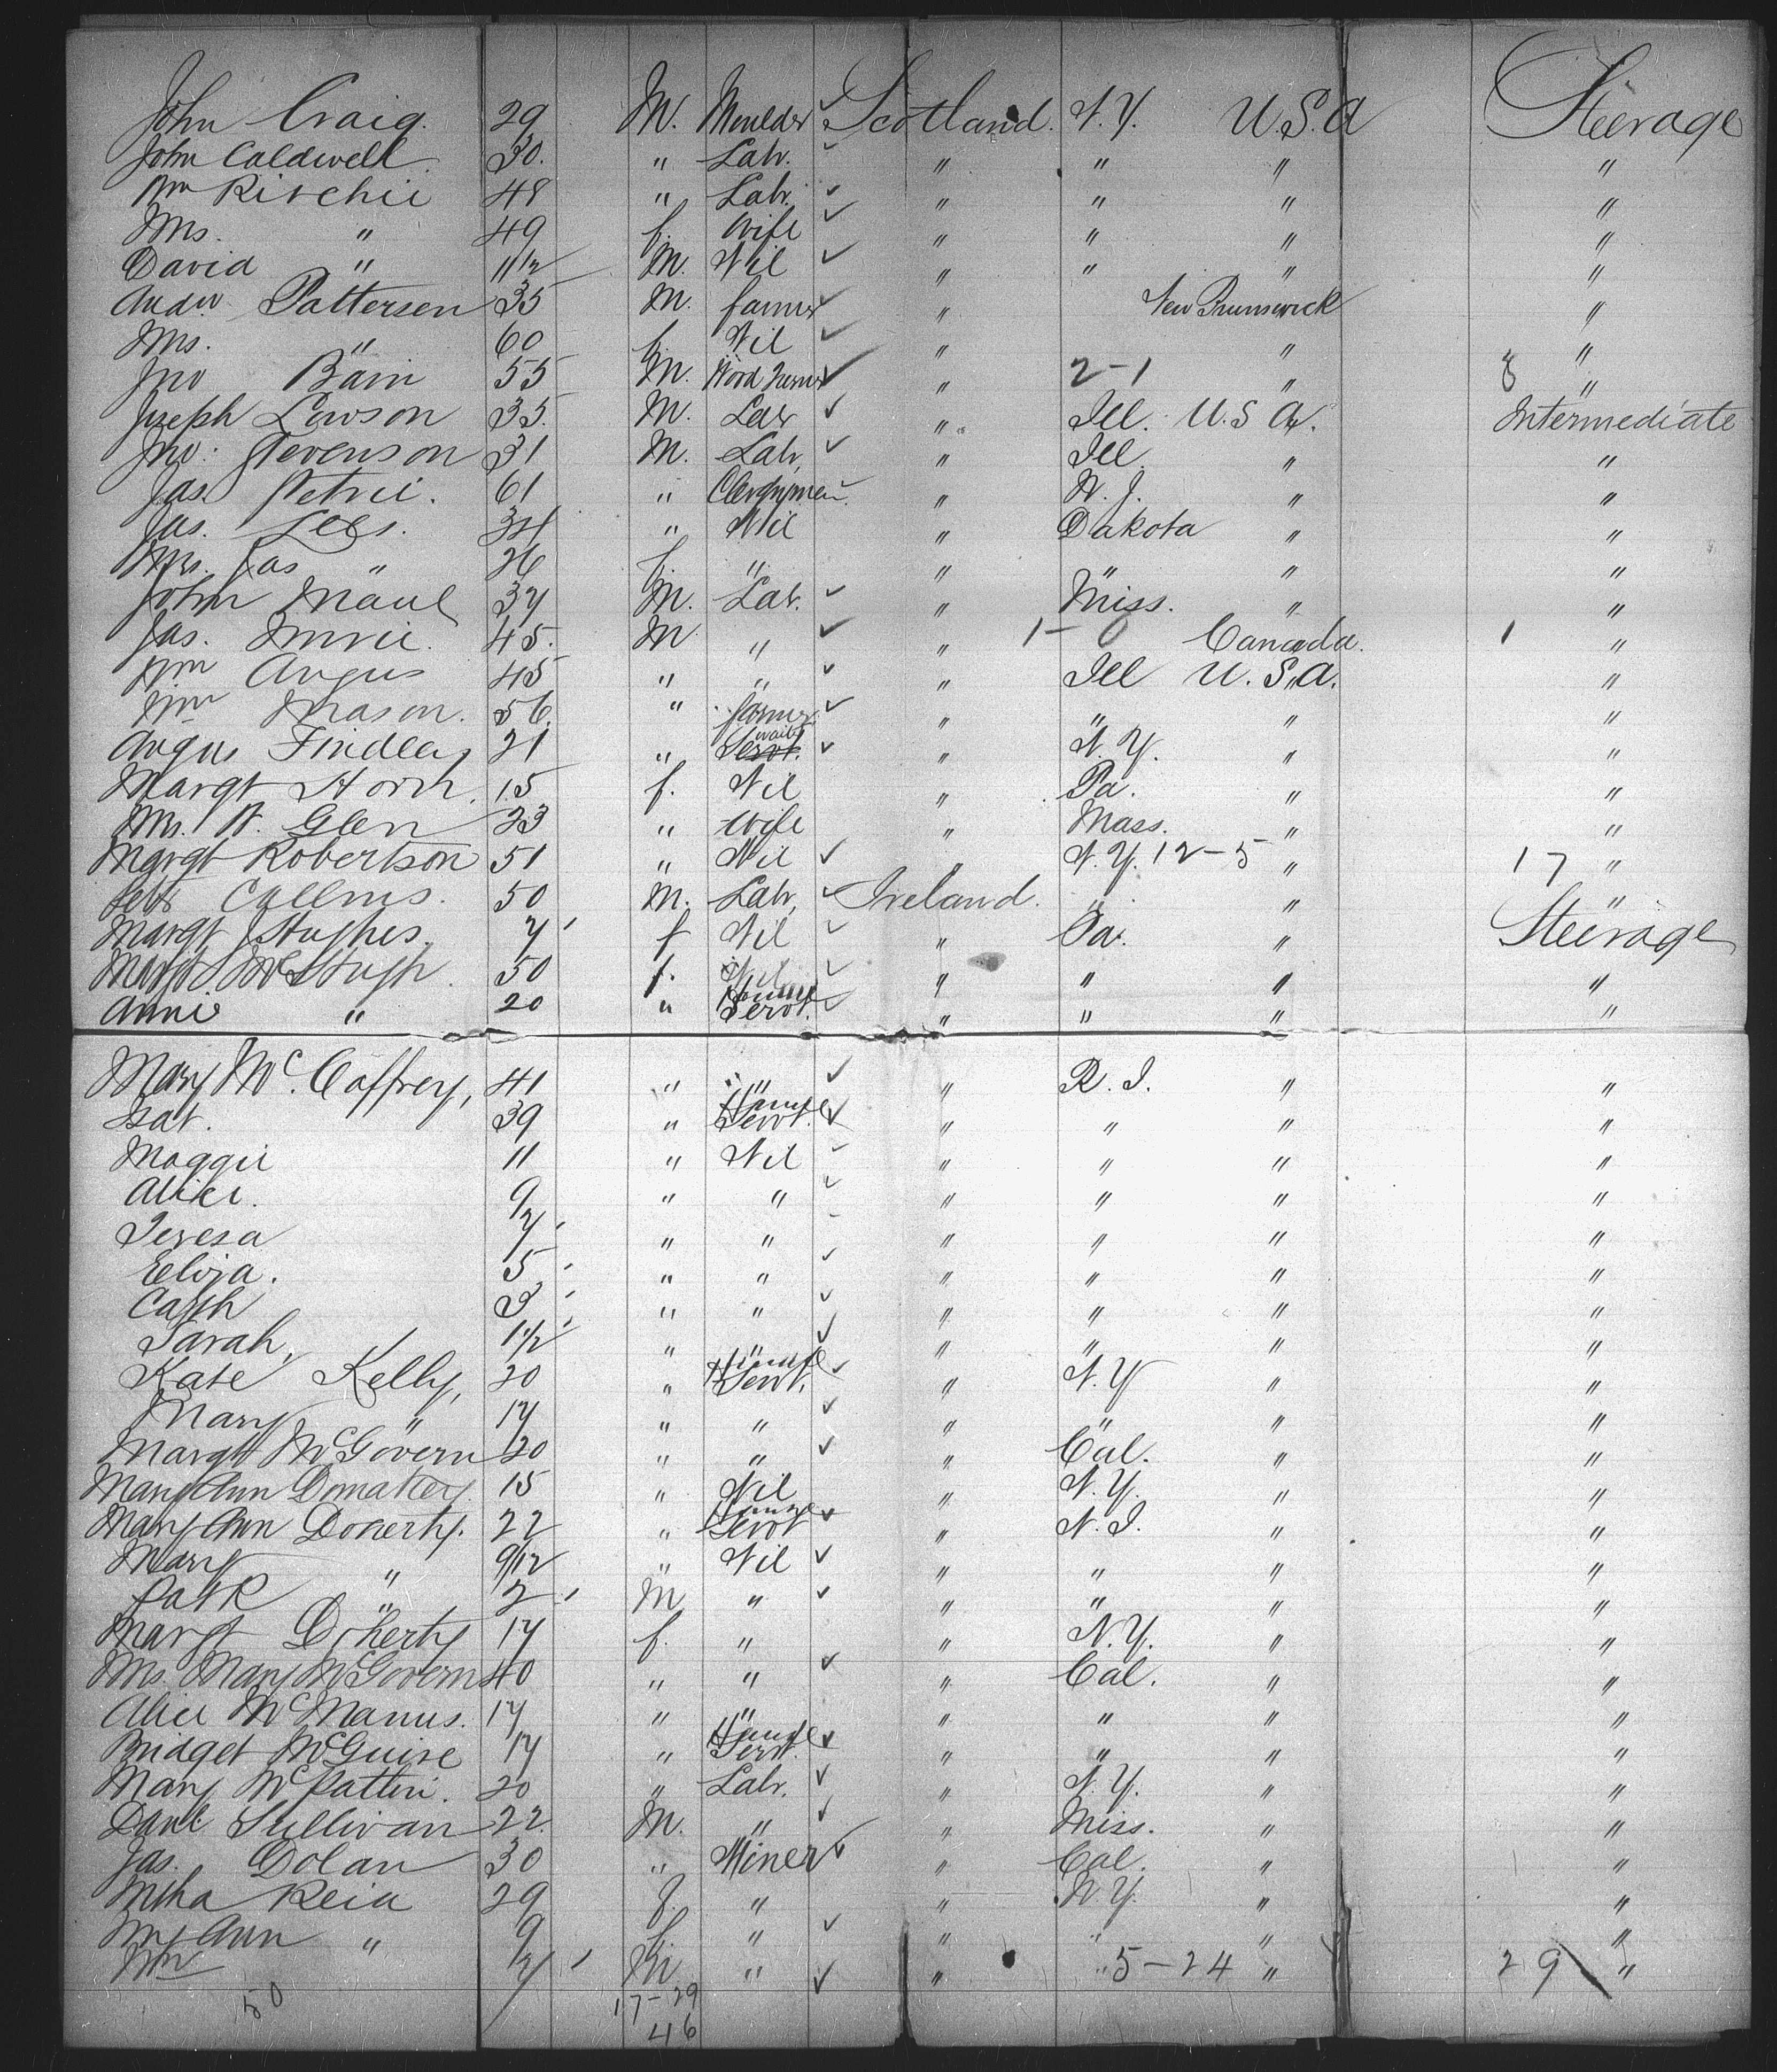 John Craig. 29 M. Moulder ✓ Scotland. N.Y. U.S.A Steerage
John Caldwell. 30. " Labr. " " " "
Wm Ritchie 48 " Labr. ✓ " " " "
Mrs. " 49 f. Wife ✓ " " " "
David " 11 1/2 M. Nil ✓ " " " "
Andw. Pattersen 35 M. farmer ✓ " New Brunswick "
Mrs. " 60 f. Nil ✓ " " "
Jno Bain 55 M. Wood ✓ " 2-1 " 8 "
Joseph Lawson 35. M. Labr ✓ " Ill. U.S A. Intermediate
Jno. Stevenson 31 M. Labr. ✓ " Ill. " "
Jas. Petrie. 61 " Clergyman " N. J. " "
Jas. Lees. 34 " Nil " Dakota " "
Mrs. Jas " 26 f. " " " " "
John Maul 37 M. Lab. ✓ " Miss. " "
Jas. Imrie. 45. M " ✓ " 1- Canada. 1 "
Wm Angus 45 " " ✓ " Ill U.S.A. "
Wm Mason. 56. " farmer ✓ " " " "
Angus Findlay 21 " Servt. ✓ " N.Y. " "
Margt Horn. 15 f. Nil " Pa. " "
Mrs. A. Glen 23 " Wife " Mass. " "
Margt Robertson 51 " Nil ✓ " N.Y. 12-5 " 17 "
Petr Collins. 50 M. Labr, ✓ Ireland. " " "
Margt Hughes. 7 f Nil ✓ " Pa. " Steerage
Margt McHugh. 50 f. Nil ✓ " " " "
Annie " 20 " House Servt. ✓ " " " "
Mary McCaffrey, 41 " " ✓ " R. I. " "
Isat. 39 " House Servt. ✓ " " " "
Maggie 11 " Nil ✓ " " " "
Alice. 9 " " ✓ " " " "
Teresa 7 " " " " " "
Eliza. 5 " " ✓ " " " "
Cath 3 " " ✓ " " " "
Sarah, 1 1/2 " " ✓ " " " "
Kate Kelly, 20 " House Servt. ✓ " N.Y " "
Mary " 17 " " ✓ " " " "
Margt McGovern 20 " " ✓ " Cal. " "
Mary Ann 15 " Nil " N.Y. " "
Mary Ann Doherty. 22 " House Servt ✓ " N.J. " "
Mary " 9/12 " Nil ✓ " " " "
Patk " 2 M " ✓ " " " "
Margt Doherty 17 f. " " N.Y. " "
Mrs. Mary McGovern 40 " " ✓ " Cal. " "
Alice McManus. 17 " " " " " "
Bridget McGuire 17 " House Servt. ✓ " " " "
Mary 20 " Labr. ✓ " N.Y. " "
Danl. Sullivan 22. M. " ✓ " Miss. " "
Jas. Dolan 30 " Miner ✓ " Cal. " "
Mtha Reid 29 f. " " N.Y. " "
My Ann " 9 f " ✓ " " " "
Wm 7 M " ✓ " " 5-24 " 29 "
50 17-29
46